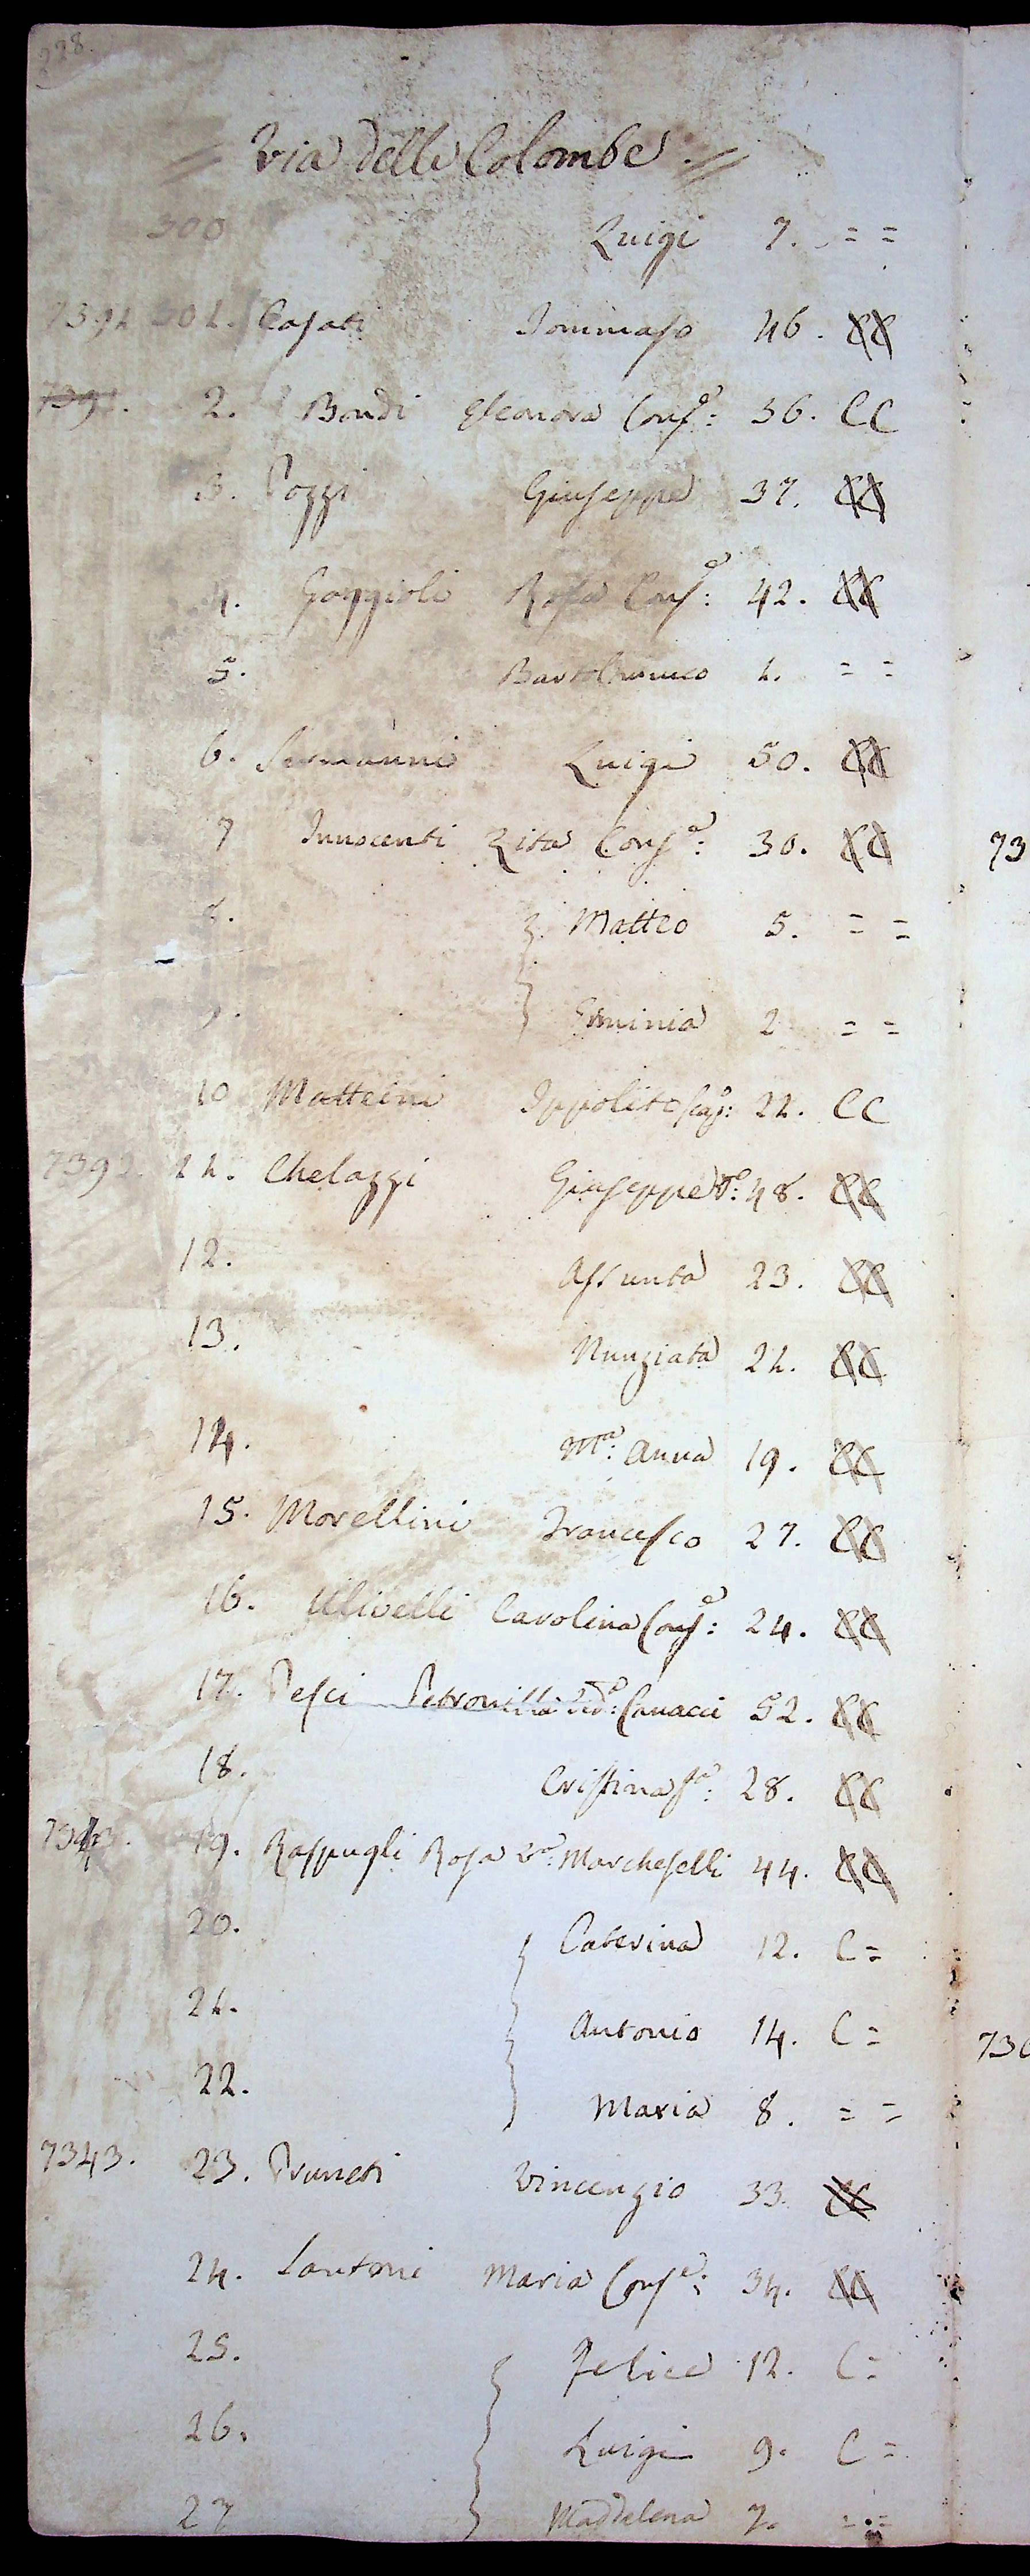 228.
Via delle Colombe
300 Luigi 7. = =
301. Casati Tommaso 46. CC
739 . 2. Bondi Eleonora Consᵉ: 36. CC
3. Pozzi Giuseppe 37. CC
4. Goggioli Rosa Consᵉ: 42. CC
5. Bartolommeo 1. = =
6. Luigi 50. CC
7 Innocenti Zita Consᵉ: 30. CC
73
8. Matteo 5. = =
9. Erminia 2 = =
10 Matteini Ippolito 22. CC
739 . 11. Chelazzi Giuseppe Vᵒ: 48. CC
12. Assunta 23. CC
13. Nunziata 21. CC
14. Mᵃ: Anna 19. CC
15. Morellini Francesco 27. CC
16. Ulivelli Carolina Consᵉ: 24. CC
17. Pesci Petronilla Vedᵃ: Canacci 52. CC
18. Cristina fᵃ: 28. CC
7343. 19. Raspugli Rosa Vᵃ: Marcheselli 44. CC
20. Caterina 12. C =
21. Antonio 14. C =
730
22. Maria 8. = =
7343. 23. Pruneti Vincenzio 33. CC
24. Santoni Maria Consᵉ: 34. CC
25. Felice 12. C =
26. Luigi 9. C =
27 Maddalena 7. = =